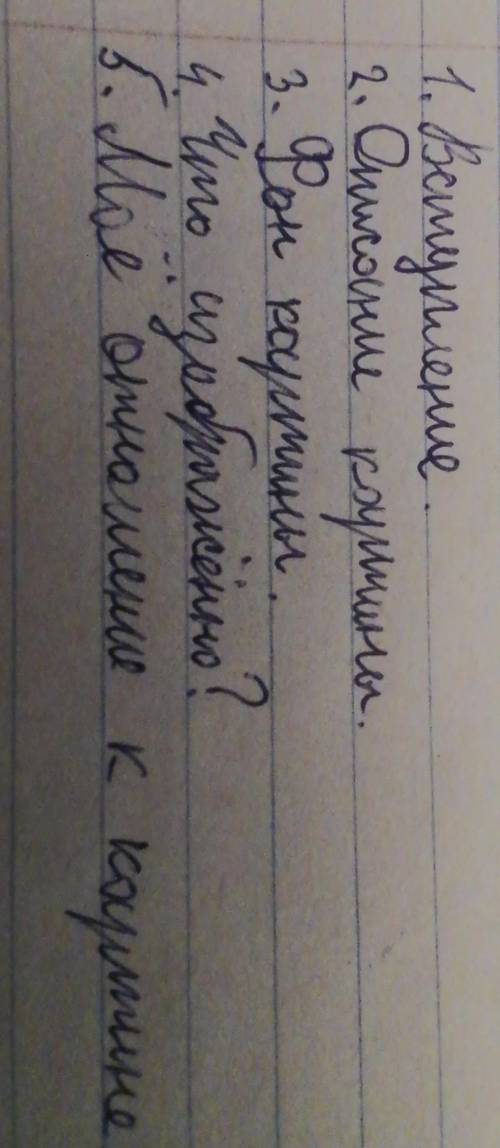 1. Вступление.
2. Описание картины.
3. Фон картины.
4. Что изображённо?
5. Моё отношение к картине